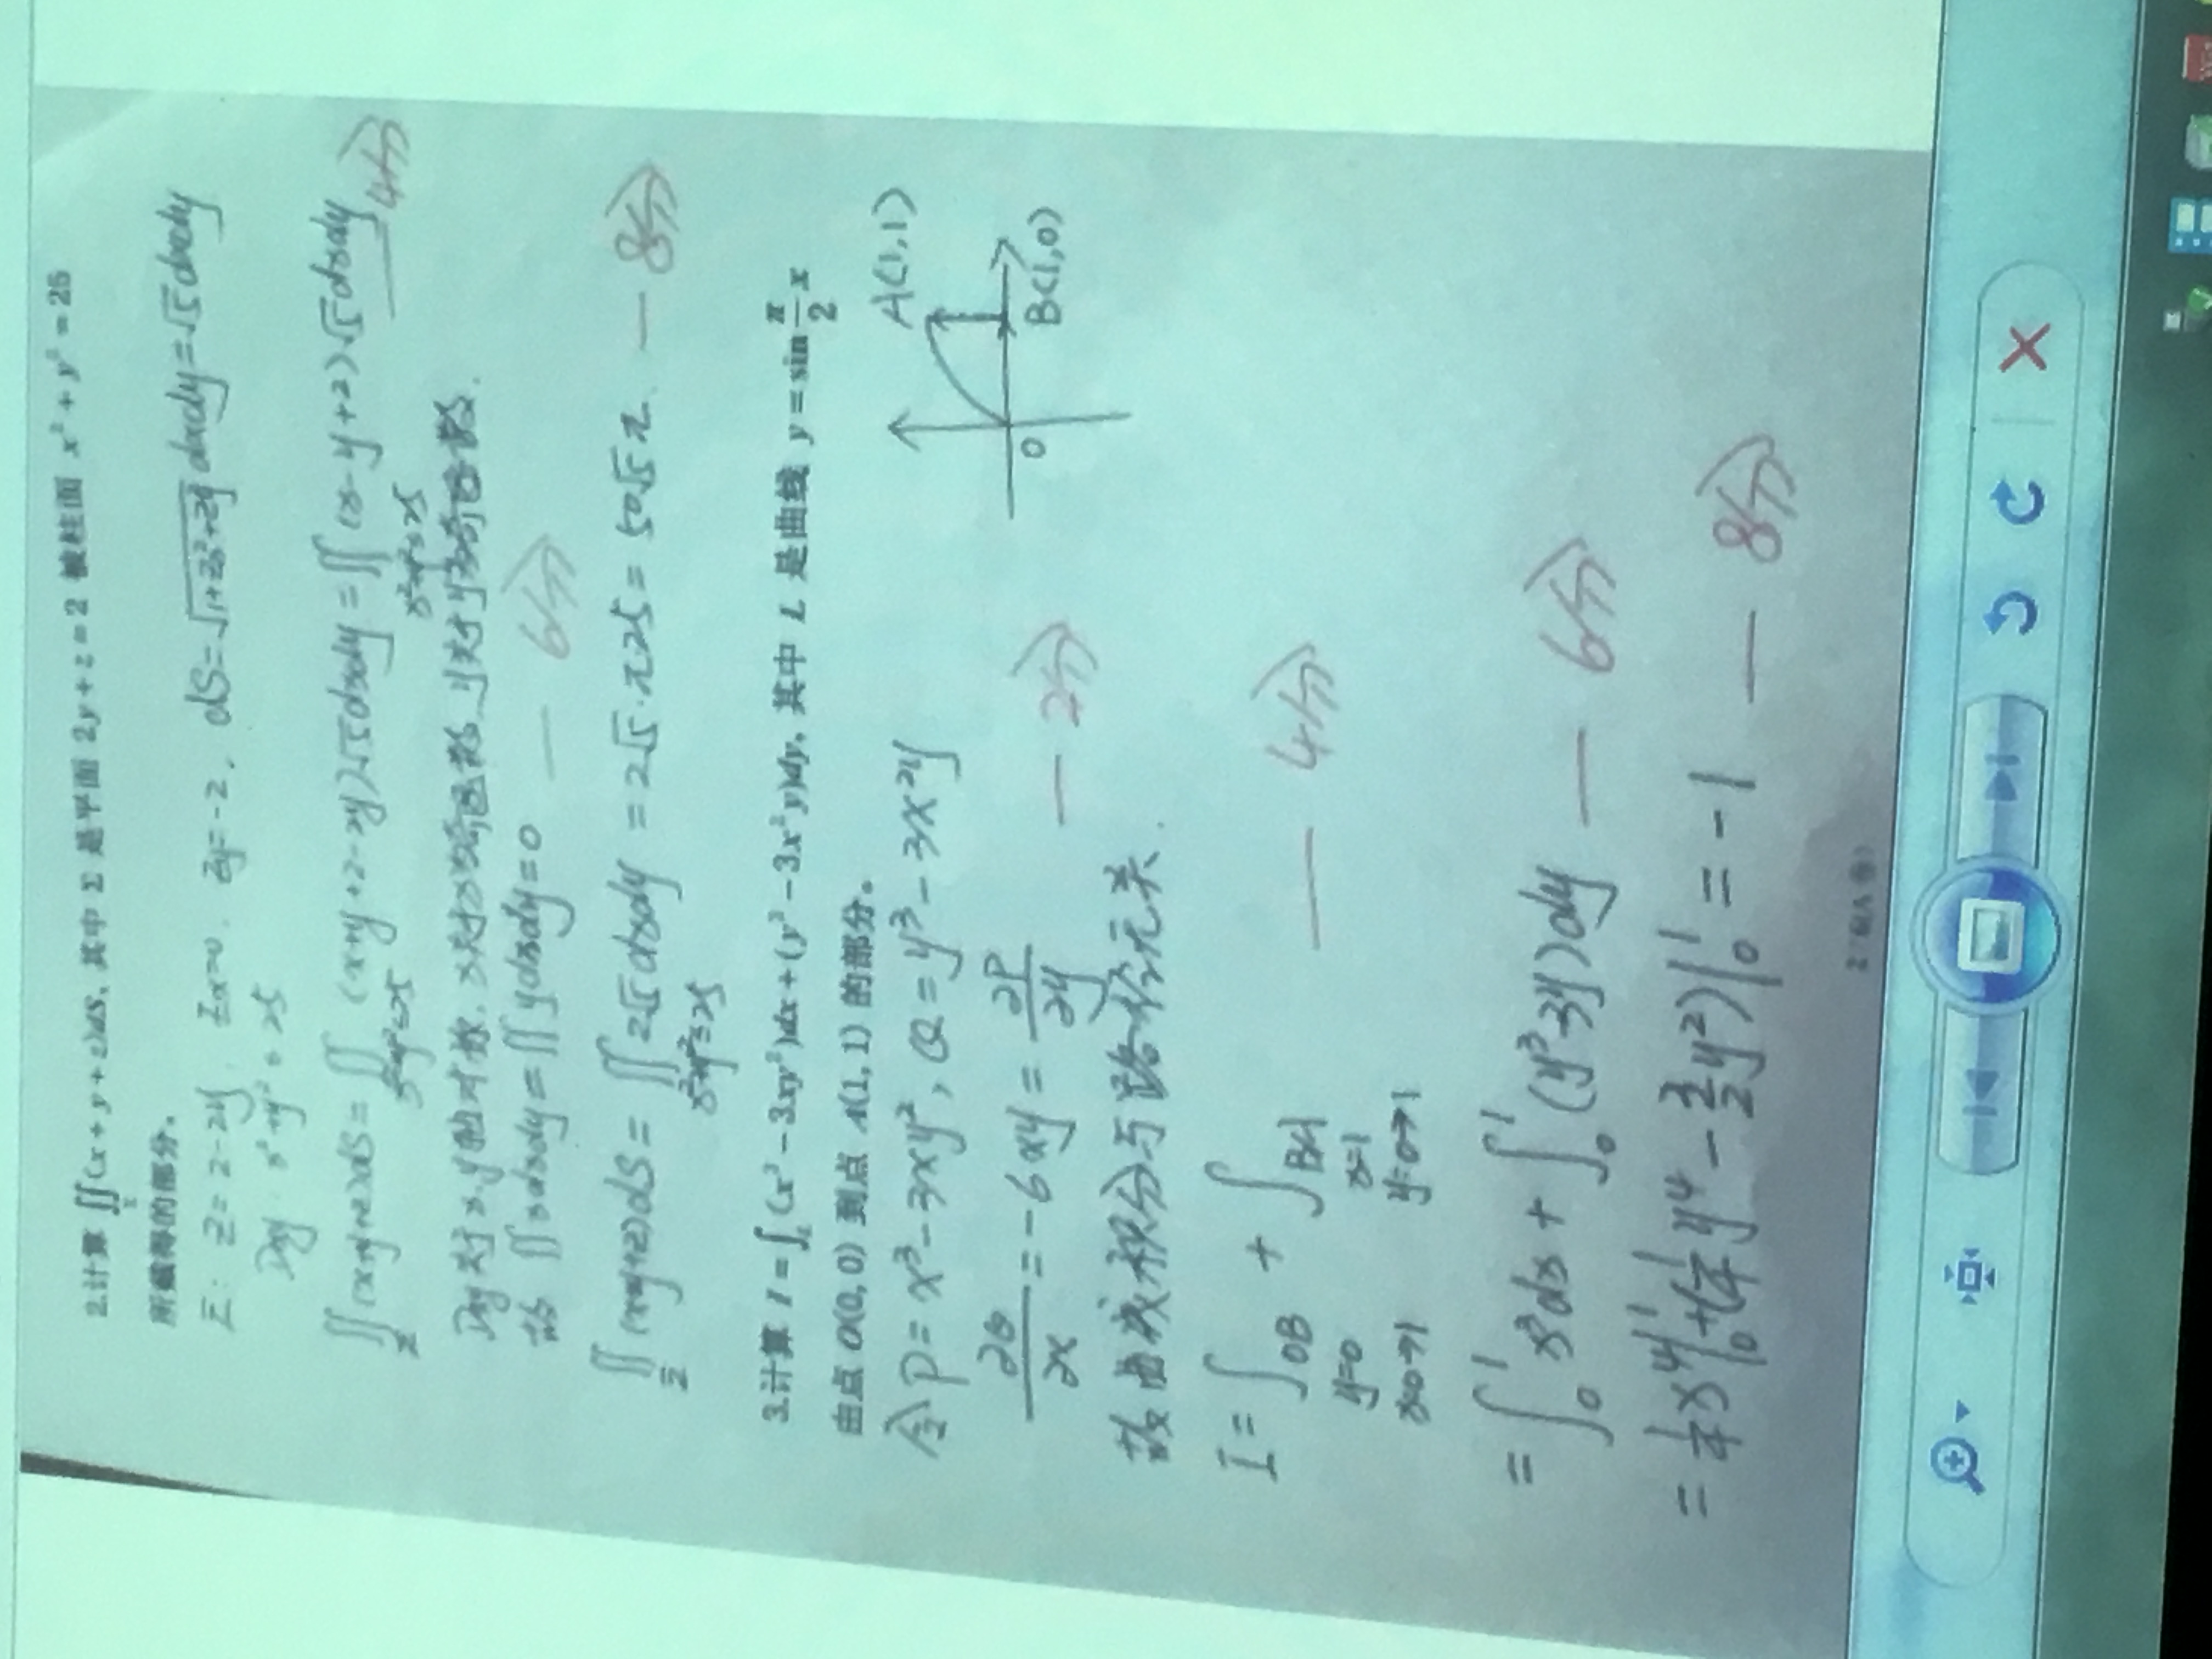 2.计算 ∬_Σ (x + y + z)dS, 其中 Σ 是平面 2y + z = 2 被柱面 x² + y² = 25
所截得的部分。
Σ: z = 2-2y, Zx=0, Zy=-2, dS=√(1+Zx²+Zy²) dxdy=√5 dxdy
Dxy: x²+y² ≤ 25
∬_Σ (x+y+z)dS = ∬_{x²+y²≤25} (x+y+2-2y)√5 dxdy = ∬_{x²+y²≤25} (x-y+2)√5 dxdy — 4分
Dxy关于x.y轴对称, x关于x为奇函数, y关于y为奇函数.
故 ∬xdxdy = ∬ydxdy = 0 — 6分
∬_Σ (x+y+z)dS = ∬_{x²+y²≤25} 2√5 dxdy = 2√5·π25 = 50√5π — 8分
3.计算 I = ∫_L (x³ - 3xy²)dx + (y³ - 3x²y)dy, 其中 L 是曲线 y = sin π/2 x
由点 O(0, 0) 到点 A(1, 1) 的部分。
令 P = x³-3xy², Q = y³-3x²y
A(1,1)
∂Q/∂x = -6xy = ∂P/∂y — 2分
O B(1,0)
故曲线积分与路径无关.
I = ∫_OB + ∫_BA — 4分
y=0 x=1
x=0→1 y=0→1
= ∫₀¹ x³dx + ∫₀¹ (y³-3y)dy — 6分
= 1/4 x⁴|₀¹ + (1/4 y⁴ - 3/2 y²)|₀¹ = -1 — 8分